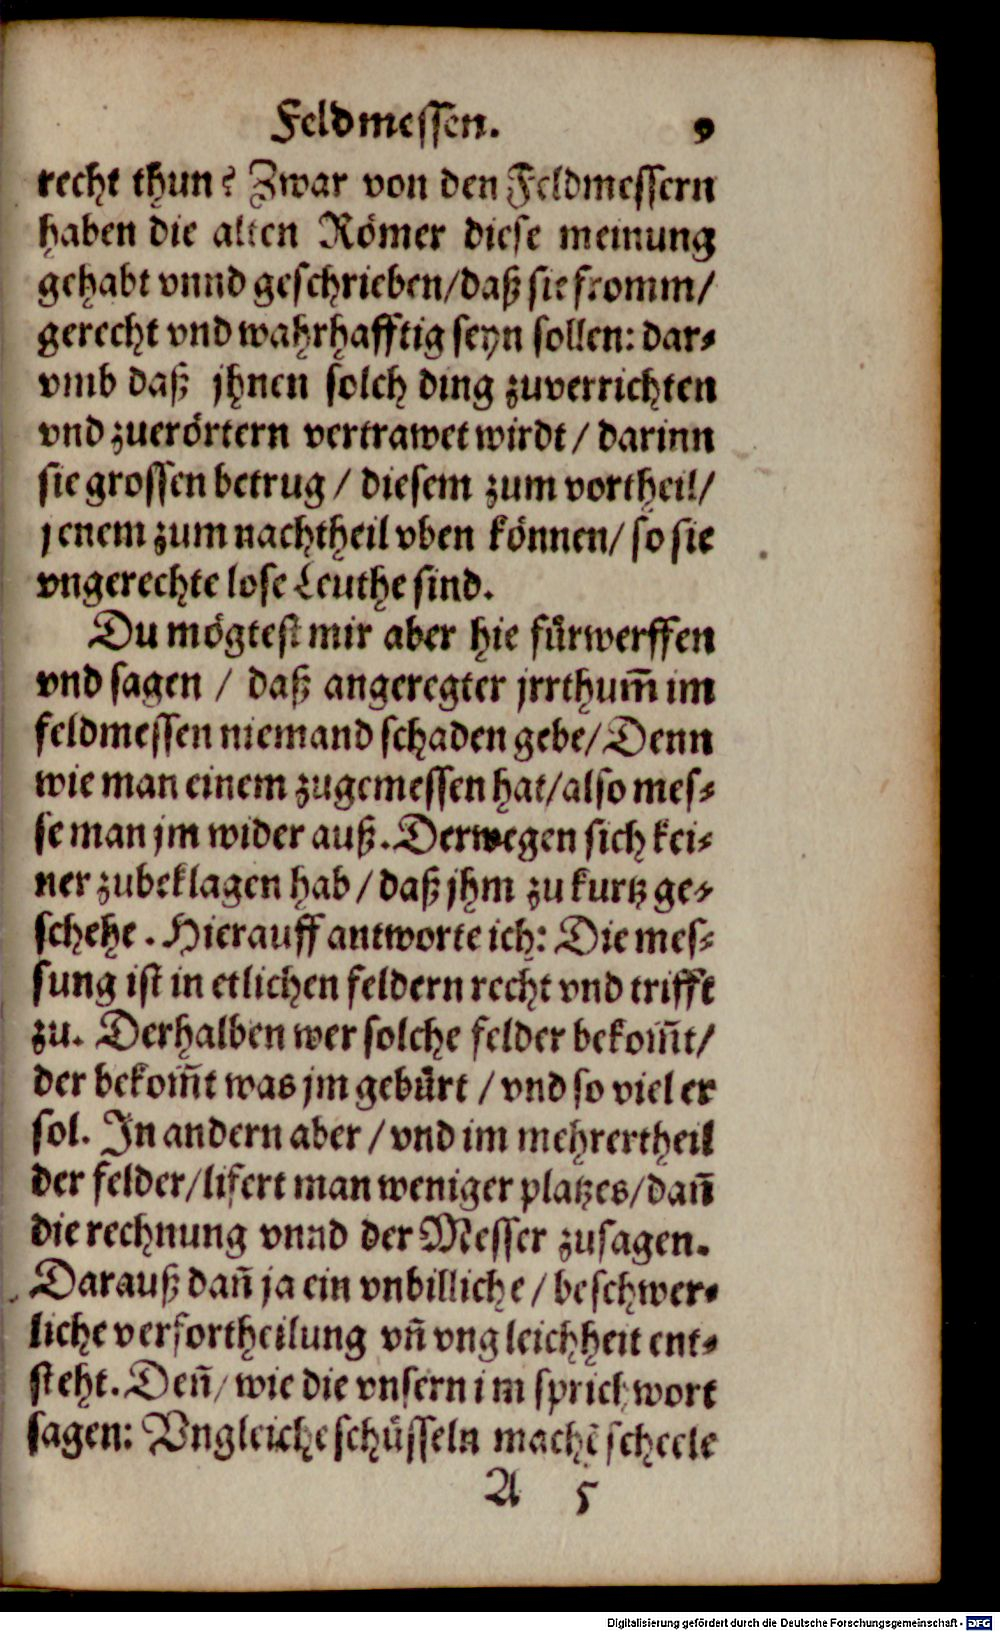 Feldmessen. 9
recht thun? Zwar von den Feldmessern
haben die alten Römer diese meinung
gehabt vnnd geschrieben/daß sie fromm/
gerecht vnd wahrhafftig seyn sollen: dar-
vmb daß jhnen solch ding zuverrichten
vnd zuerörtern vertrawet wirdt / darinn
sie grossen betrug / diesem zum vortheil/
jenem zum nachtheil vben können/ so sie
vngerechte lose Leuthe sind.
Du mögtest mir aber hie fürwerffen
vnd sagen / daß angeregter jrrthum̃ im
feldmessen niemand schaden gebe/ Denn
wie man einem zugemessen hat/also mes-
se man jm wider auß. Derwegen sich kei-
ner zubeklagen hab / daß jhm zu kurtz ge-
schehe. Hierauff antworte ich: Die mes-
sung ist in etlichen feldern recht vnd trifft
zu. Derhalben wer solche felder bekom̃t/
der bekom̃t was jm gebürt / vnd so viel er
sol. In andern aber / vnd im mehrertheil
der felder/lifert man weniger platzes/dañ
die rechnung vnnd der Messer zusagen.
Darauß dañ ja ein vnbilliche / beschwer-
liche verfortheilung vñ vngleichheit ent-
steht. Deñ/ wie die vnsern im sprichwort
sagen: Vngleiche schüsseln machẽ scheele
A 5
Digitalisierung gefördert durch die Deutsche Forschungsgemeinschaft - DFG